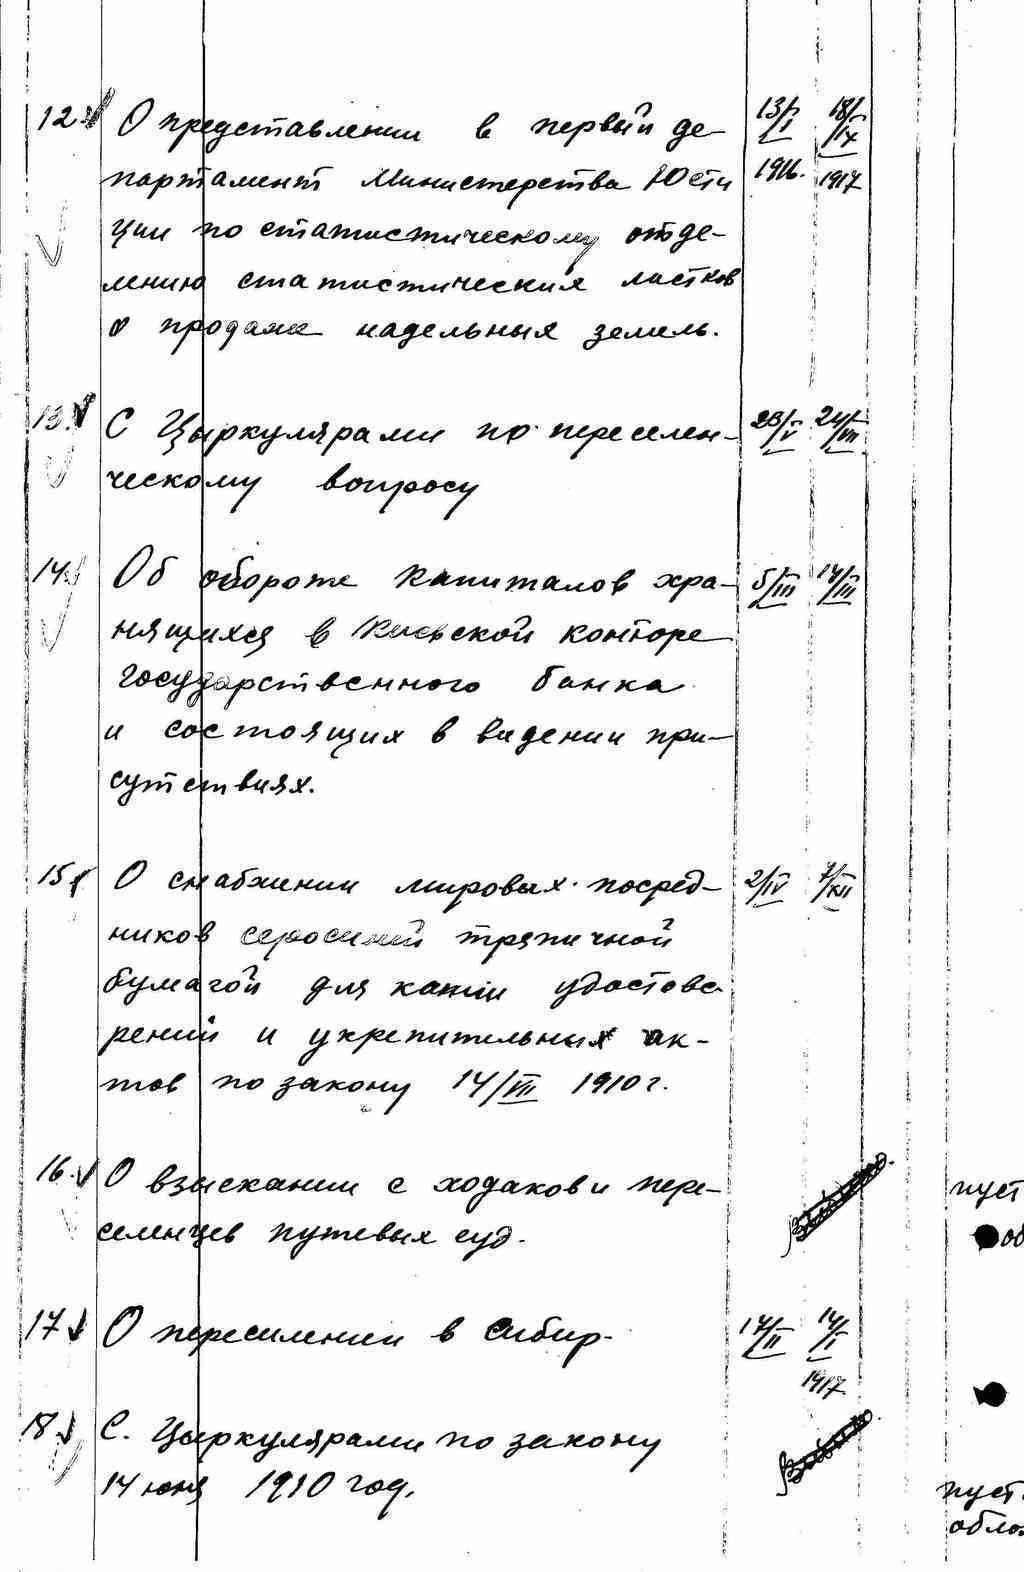 12. О представлении в первый де- 13/I 18/IX
партамент Министерства Юсти 1916. 1917
ции по статистическому отде-
лению статистических листков
о продаже надельных земель.
13. С Цыркулярами по переселен- 23/V 24/VIII
ческому вопросу
14. Об обороте капиталов хра- 5/III 14/III
нящихся в Киевской конторе
государственного банка
и состоящих в видении при-
сутствиях.
15 О снабжении мировых посред- 2/IV 7/XII
ников тряпичной
бумагой для удостове
рений и укрепительных ак-
тов по закону 14/VII 1910 г.
16. О взыскании с ходаков и пере- пуст
селенцев путевых суд. об
17 О переселении в Сибир. 14/II 14/I
1917
18 С. Цыркулярами по закону
14 июня 1910 год. пуст.
обло